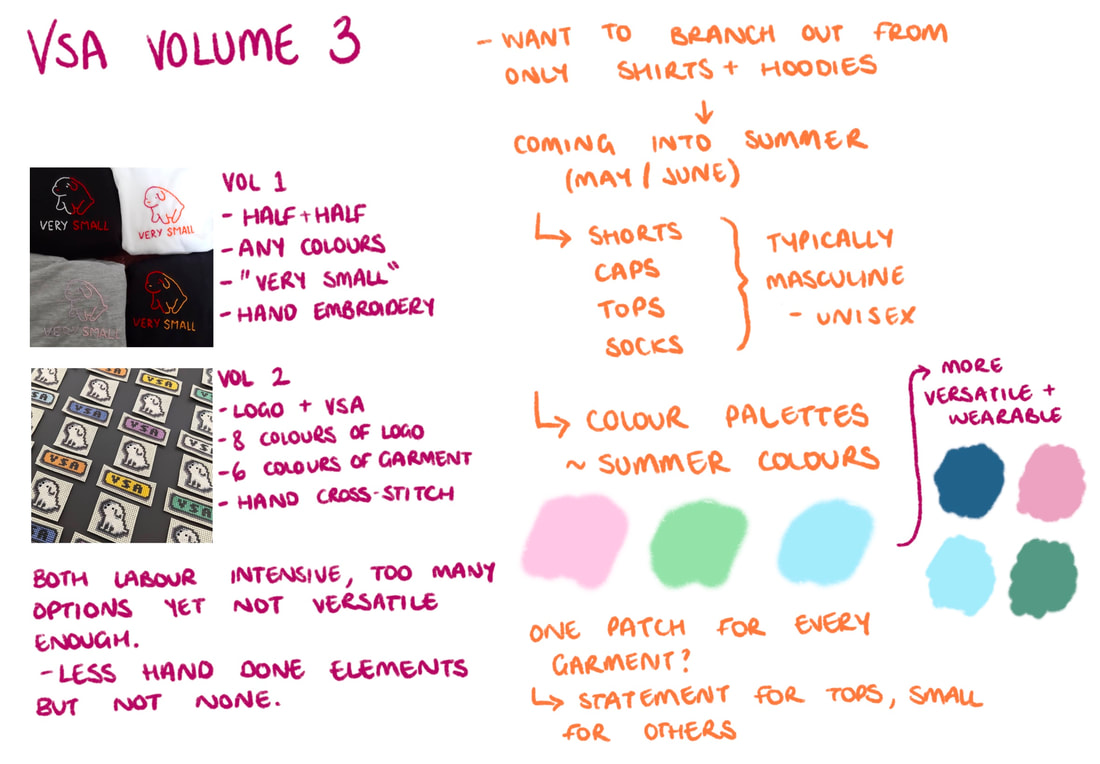 VSA VOLUME 3
VERY SMALL
VERY SMALL
VERY SMALL
VERY SMALL
VOL 1
- HALF + HALF
- ANY COLOURS
- "VERY SMALL"
- HAND EMBROIDERY
VSA
VSA
VSA
VSA
VSA
VSA
VOL 2
- LOGO + VSA
- 8 COLOURS OF LOGO
- 6 COLOURS OF GARMENT
- HAND CROSS-STITCH
BOTH LABOUR INTENSIVE, TOO MANY
OPTIONS YET NOT VERSATILE
ENOUGH.
- LESS HAND DONE ELEMENTS
BUT NOT NONE.
- WANT TO BRANCH OUT FROM
ONLY SHIRTS + HOODIES
↓
COMING INTO SUMMER
(MAY / JUNE)
↳ SHORTS
CAPS
TOPS
SOCKS
TYPICALLY
MASCULINE
- UNISEX
↳ COLOUR PALETTES
~ SUMMER COLOURS
→ MORE
VERSATILE +
WEARABLE
ONE PATCH FOR EVERY
GARMENT?
↳ STATEMENT FOR TOPS, SMALL
FOR OTHERS